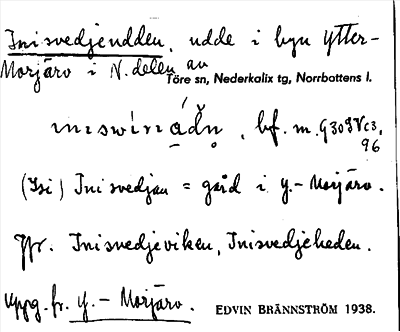 Inisvedjeudden, udde i byn Ytter-
Morjärv i N. delen av
Töre sn, Nederkalix tg, Norrbottens l.
bf. m. G3
96
(Isi) Inisvedjan = gård i Y.-Morjärv.
Jfr. Inisvedjeviken, Inisvedjeheden.
Uppg. fr. Y.-Morjärv. EDVIN BRÄNNSTRÖM 1938.